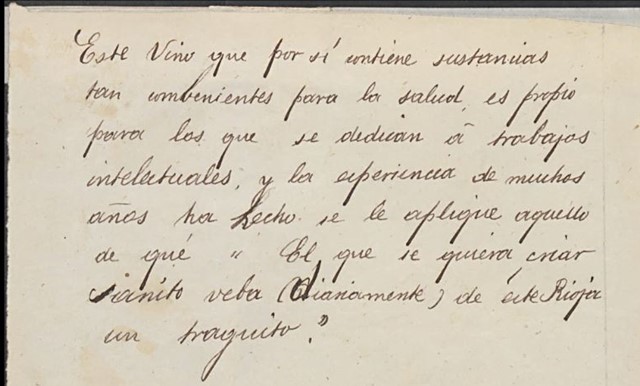 Este Vino que por sí contiene sustancias
tan combenientes para la salud, es propio
para los que se dedican á trabajos
intelectuales, y la esperiencia de muchos
años ha hecho se le aplique aquello
de qué “ El que se quiera criar
sanito veba (diariamente) de éste Rioja
un traguito.”